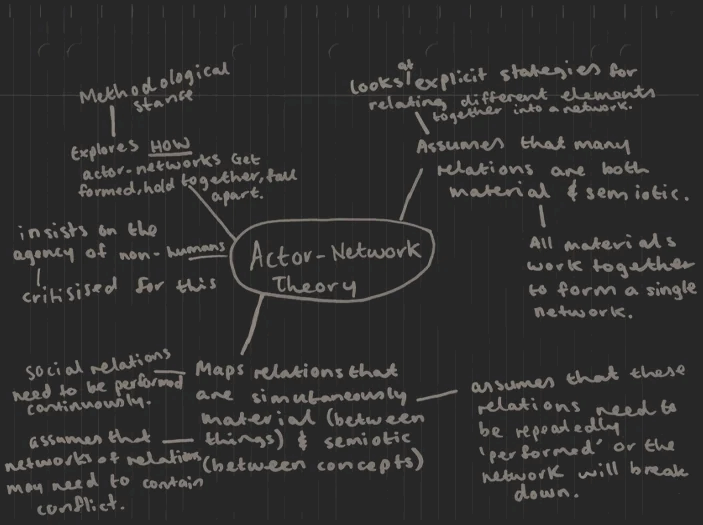 Methodological
stance
Explores HOW
actor-networks Get
formed, hold together, fall
apart.
looks at explicit stategies for
relating different elements
together into a network.
Assumes that many
relations are both
material & semiotic.
All materials
work together
to form a single
network.
insists on the
agency of non-humans
critisised for this
Actor-Network
Theory
Social relations
need to be performed
continuously.
assumes that
networks of relations
may need to contain
conflict.
Maps relations that
are simultaneously
material (between
things) & semiotic
(between concepts)
assumes that these
relations need to
be repeatedly
'performed' or the
network will break
down.